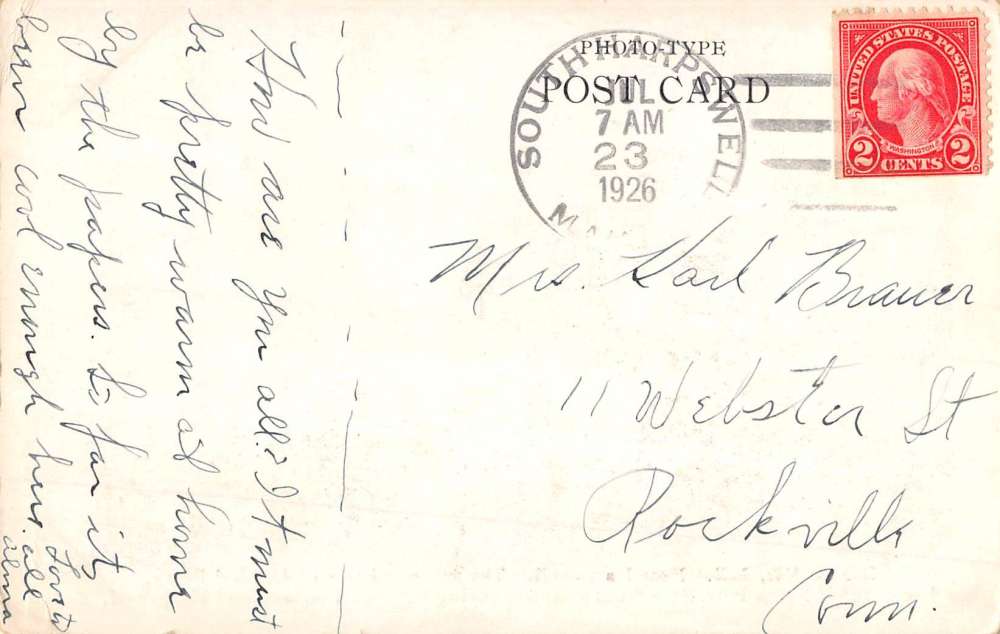 PHOTO-TYPE
POST CARD
SOUTH HARPSWELL
JUL
7 AM
23
1926
UNITED STATES POSTAGE
WASHINGTON
2 CENTS 2
How are you all? It must
be pretty warm at home
by the papers. So far it's
been cool enough here.
Love to
all
Alma
Mrs. Karl Brauer
11 Webster St
Rockville
Conn.